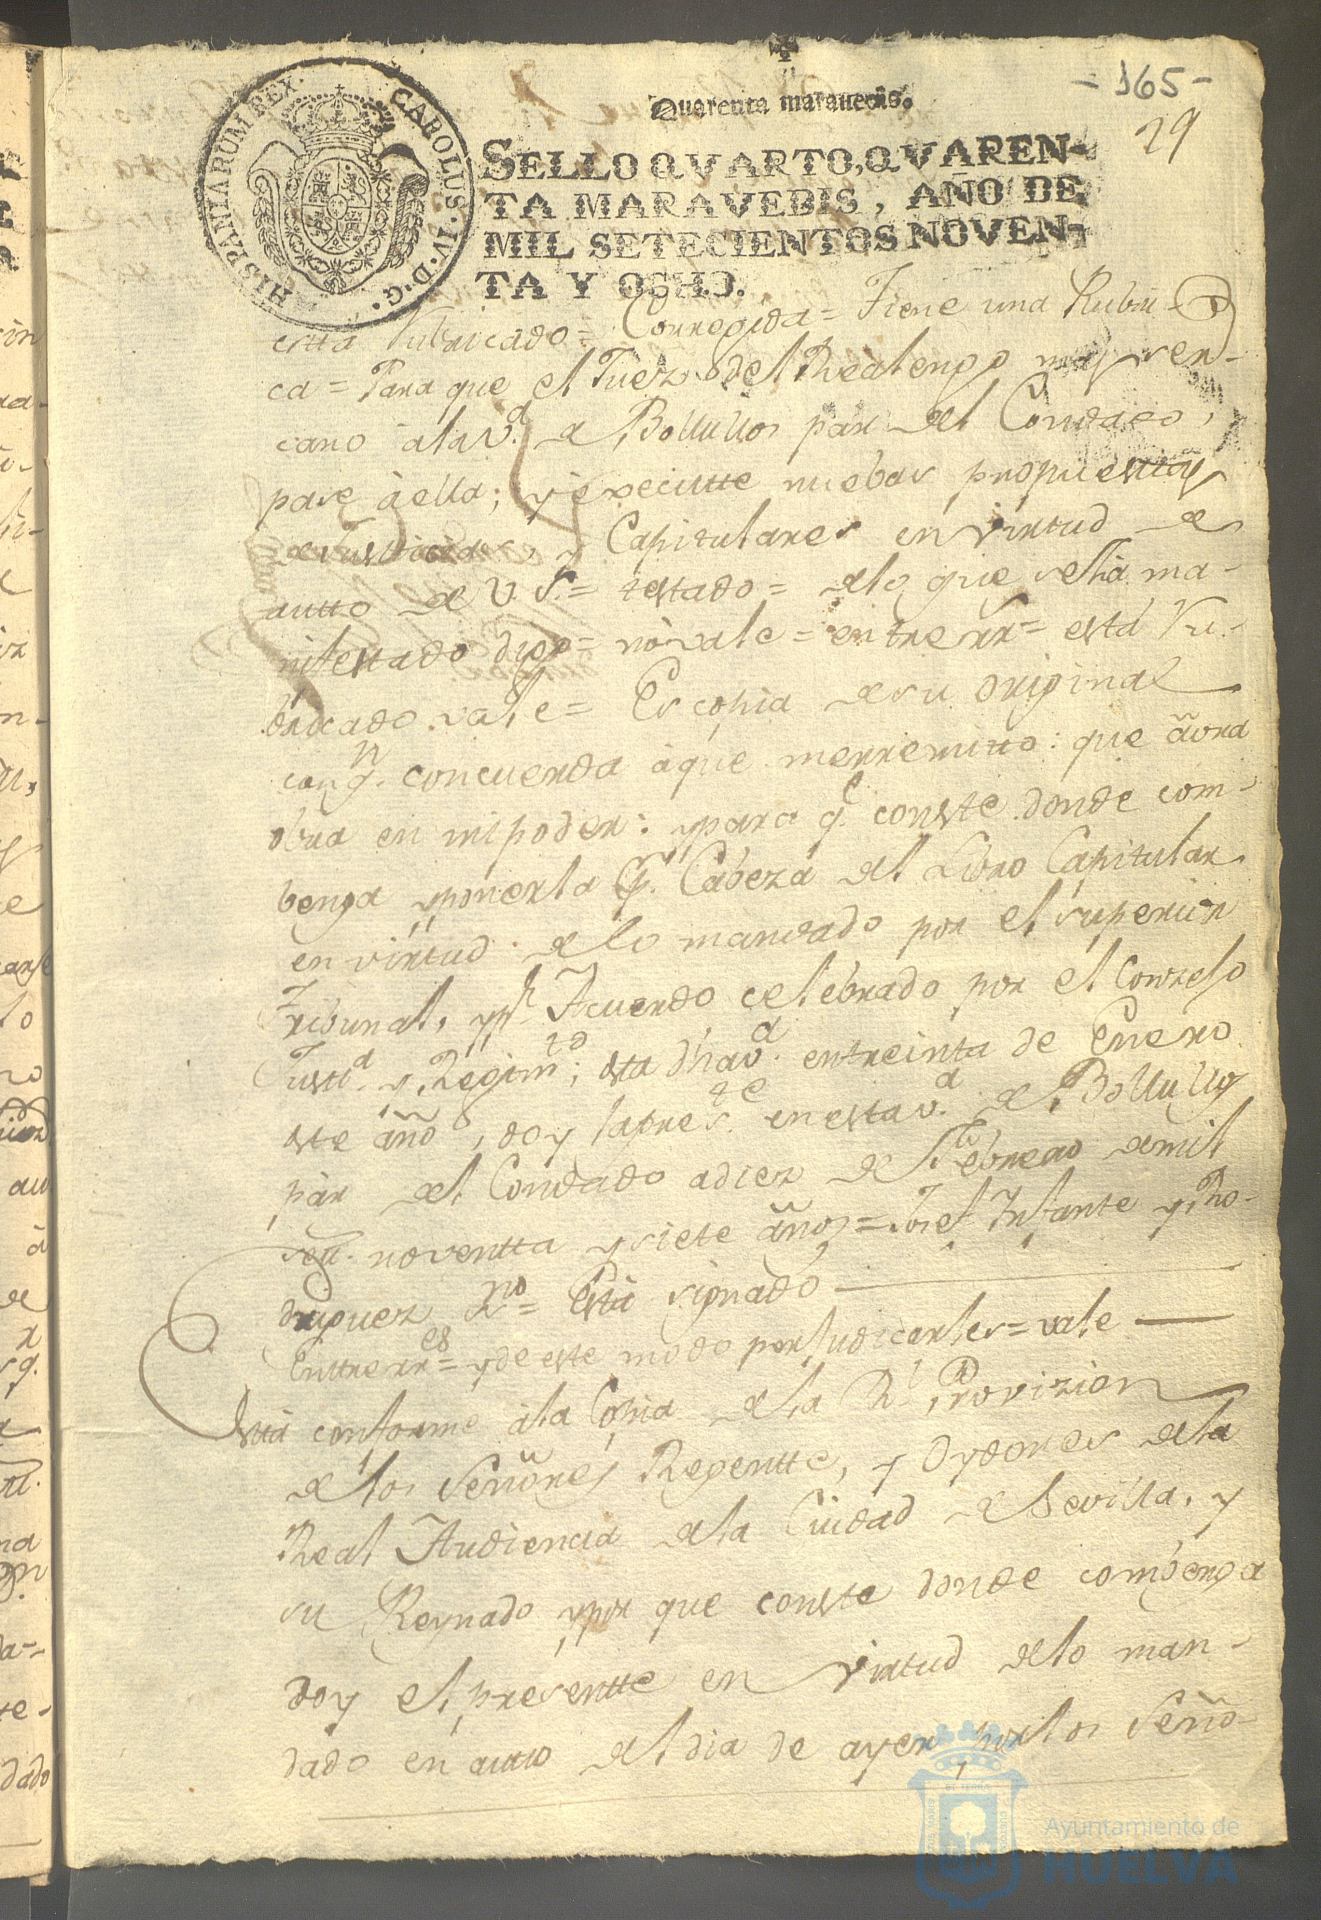 -165-
29
Quarenta maravedis.
SELLO QVARTO, QVAREN-
TA MARAVEDIS, AÑO DE
MIL SETECIENTOS NOVEN-
TA Y OCHO.
CAROLUS·IV·D·G·HISPANIARUM REX·
está Rubricado = Corregida = Tiene una Rubri-
ca = Para que el Juez del Realengo mas cer-
cano ala v.ª de Bollullos par del Condado,
pase à ella; y execute nuebas propuestas
de Justicias, y Capitulares en virtud de
autto de V. S. = testado = delo que se ha ma-
nifestado dijo = no vale = entrerr.s = está Ru-
bricado. vale = Es copia de su original
con q.n concuerda à que me rremitto: que aõra
obra en mi poder: y para q.e conste donde com-
benga y ponerla p.r Cabeza del Libro Capitular
en virtud de lo mandado por el superior
Tribunal, y p.r Acuerdo celebrado por el Conzejo
Just.ª y Regim.to; desta dha v.ª en treinta de Enero
deste año, doy la pres.te en esta v.ª de Bollullos
par del Condado a diez de Febrero de mil
sett. noventta y siete años = Josef Infante y Ro-
driguez Ss.no = Está signado
Enttrerr.es = y de este modo perjudicarles = vale
Está conforme à la Copia de la R.l Provizion
de los Señores Regentte, y Oydores dela
Real Audiencia dela Ciudad de Sevilla, y
su Reynado y por que conste donde combenga
doy el presentte en virtud delo man-
dado en auto del dia de ayer por los Seño-
Ayuntamiento de
HUELVA